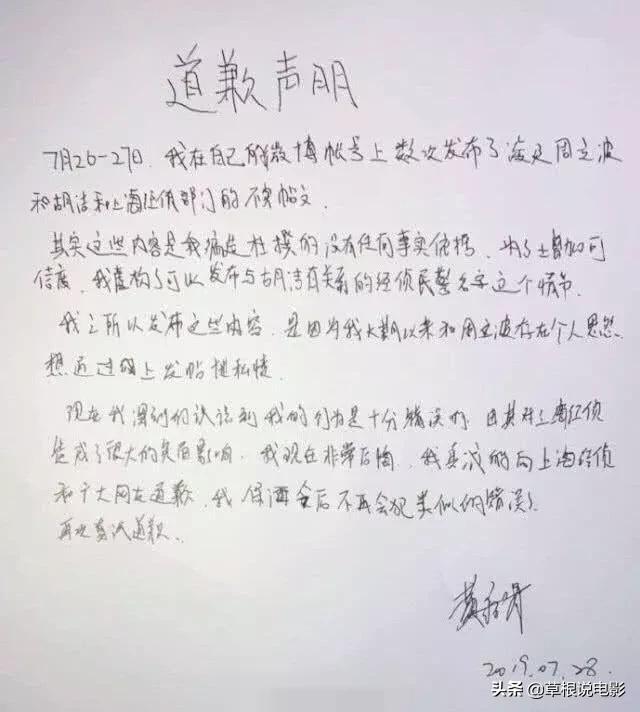 道歉声明
7月26-27日，我在自己的微博帐号上数次发布了涉及周立波
和胡洁和上海经侦部门的不实帖文.
其实这些内容是我编造杜撰的没有任何事实依据，为了增加可
信度，我虚构了可以发布与胡洁有关系的经侦民警名字这个情节.
我之所以发布这些内容，是因为我长期以来和周立波存在个人恩怨
想通过网上发帖泄私愤.
现在我深刻的认识到我的行为是十分错误的，尤其对上海经侦
造成了很大的负面影响，我现在非常后悔，我真诚的向上海经侦
和广大网友道歉，我保证今后不再会犯类似的错误，
再次真诚道歉.
2019.07.28
头条 @草根说电影